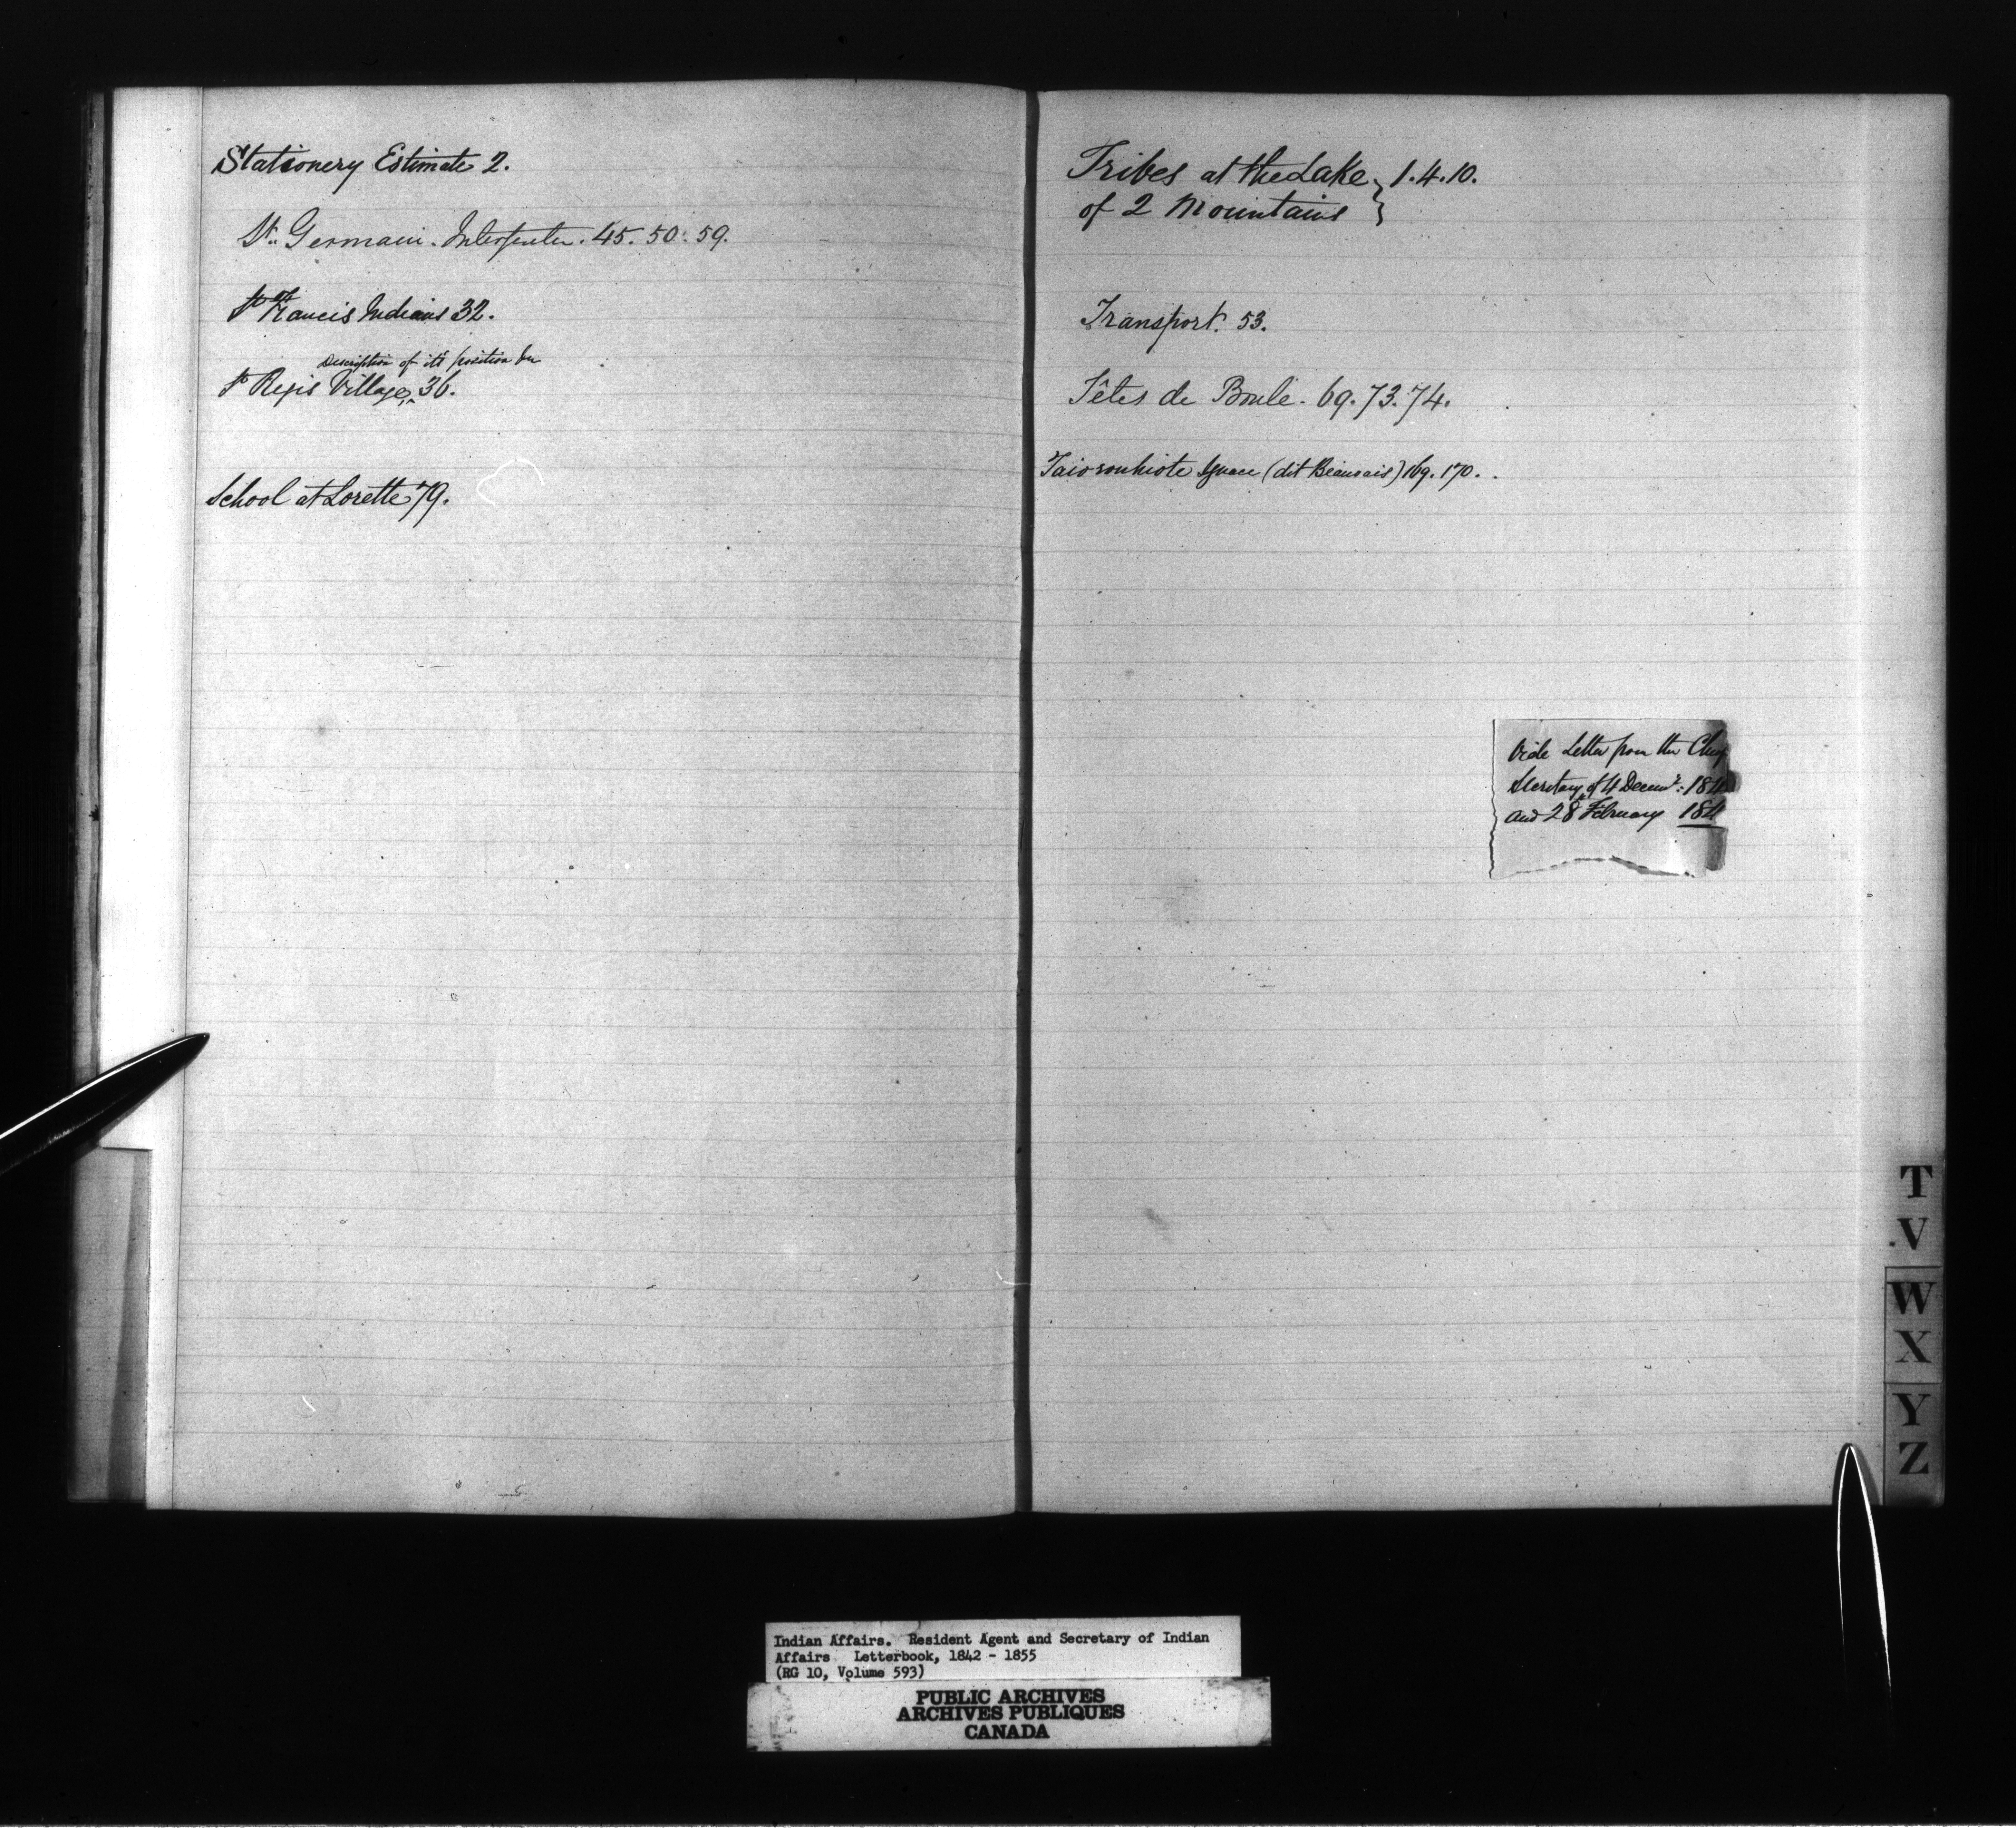 Stationery Estimate 2.
St. Germain. Interpreter. 45. 50. 59.
St Francis Indians 32.
Description of its position &c
St Regis Village, 36.
School at Lorette 79.
Tribes at the Lake } 1. 4. 10.
of 2 Mountains
Transport. 53.
Têtes de Boule. 69. 73. 74.
Taioronhiote Ignace (dit Beauvais) 169. 170.
Vide Letter from the Chief
Secretary of 4 Decemr: 184
and 28 February 184
T
V
W
X
Y
Z
Indian Affairs. Resident Agent and Secretary of Indian
Affairs Letterbook, 1842 - 1855
(RG 10, Volume 593)
PUBLIC ARCHIVES
ARCHIVES PUBLIQUES
CANADA